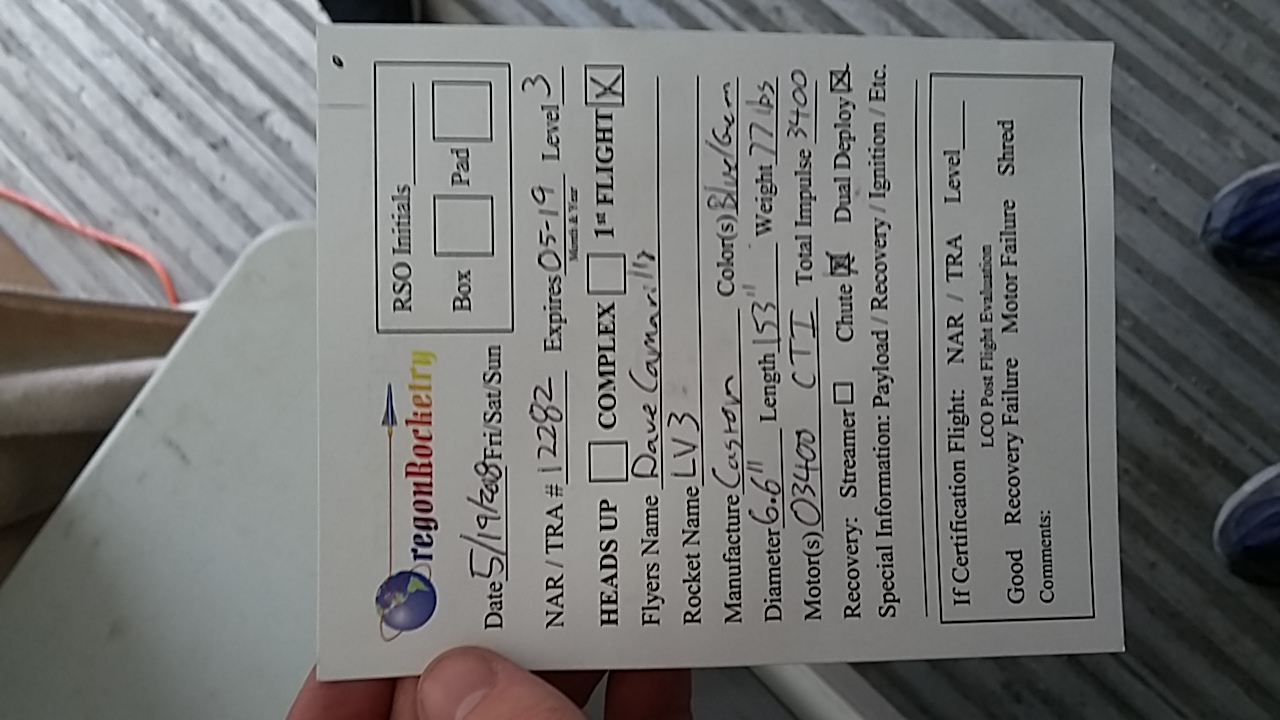 OregonRocketry
RSO Initials
Box Pad
Date 5/19/2018 Fri/Sat/Sun
NAR / TRA # 12282 Expires 05-19 Level 3
Month & Year
HEADS UP COMPLEX 1st FLIGHT X
Flyers Name Dave Camarillo
Rocket Name LV3
Manufacture Custom Color(s) Blue/Green
Diameter 6.6" Length 153" Weight 77 lbs
Motor(s) O3400 CTI Total Impulse 3400
Recovery: Streamer Chute X Dual Deploy X
Special Information: Payload / Recovery / Ignition / Etc.
If Certification Flight: NAR / TRA Level
LCO Post Flight Evaluation
Good Recovery Failure Motor Failure Shred
Comments: